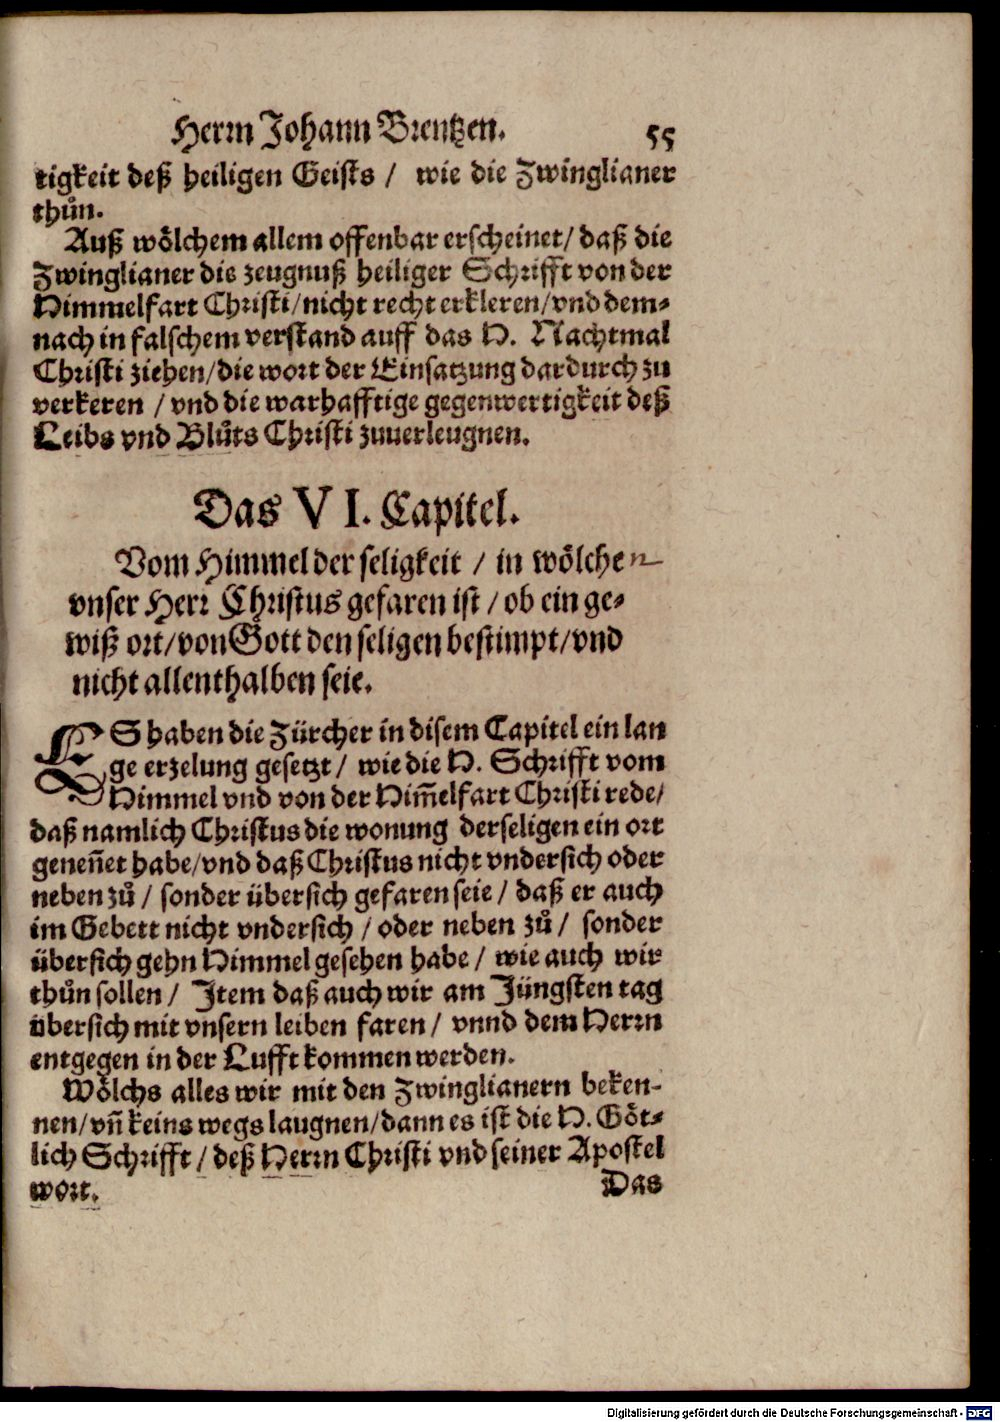 Herrn Johann Brentzen. 55
tigkeit deß heiligen Geists / wie die Zwinglianer
thůn.
Auß wölchem allem offenbar erscheinet / daß die
Zwinglianer die zeugnuß heiliger Schrifft von der
Himmelfart Christi / nicht recht erkleren / vnd dem-
nach in falschem verstand auff das H. Nachtmal
Christi ziehen / die wort der Einsatzung dardurch zu
verkeren / vnd die warhafftige gegenwertigkeit deß
Leibs vnd Blůts Christi zuuerleugnen.
Das VI. Capitel.
Vom Himmel der seligkeit / in wölchen
vnser Herr Christus gefaren ist / ob ein ge-
wiß ort / von Gott den seligen bestimpt / vnd
nicht allenthalben seie.
ES haben die Zürcher in disem Capitel ein lan
ge erzelung gesetzt / wie die H. Schrifft vom
Himmel vnd von der Him̄elfart Christi rede /
daß namlich Christus die wonung der seligen ein ort
geneñet habe / vnd daß Christus nicht vndersich oder
neben zů / sonder übersich gefaren seie / daß er auch
im Gebett nicht vndersich / oder neben zů / sonder
übersich gehn Himmel gesehen habe / wie auch wir
thůn sollen / Item daß auch wir am Jüngsten tag
übersich mit vnsern leiben faren / vnnd dem Herrn
entgegen in der Lufft kommen werden.
Wölchs alles wir mit den Zwinglianern beken-
nen / vñ keins wegs laugnen / dann es ist die H. Göt-
lich Schrifft / deß Herrn Christi vnd seiner Apostel
wort. Das
Digitalisierung gefördert durch die Deutsche Forschungsgemeinschaft - DFG